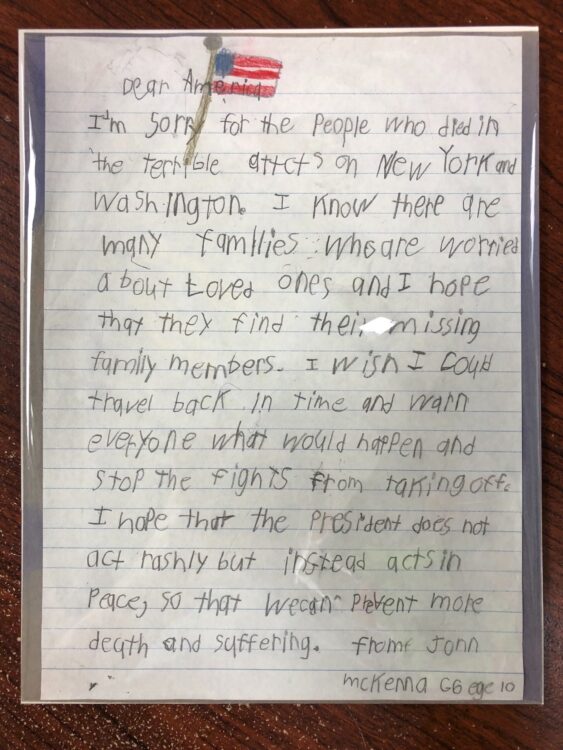 Dear America
I'm sorry for the People who died in
the terrible attcts on New York and
Washington. I know there are
many families who are worried
about Loved ones and I hope
that they find their missing
family members. I wish I could
travel back in time and warn
everyone what would happen and
stop the fights from taking off.
I hope that the president does not
act rashly but instead acts in
Peace, so that we can prevent more
death and suffering. from John
McKenna G6 age 10